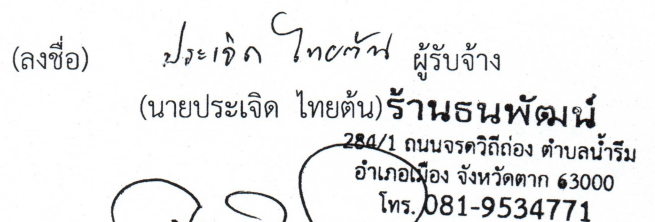 (ลงชื่อ) ประเจิด ไทยต้น ผู้รับจ้าง
(นายประเจิด ไทยต้น) ร้านธนพัฒน์
284/1 ถนนจรดวิถีถ่อง ตำบลน้ำรึม
อำเภอเมือง จังหวัดตาก 63000
โทร. 081-9534771